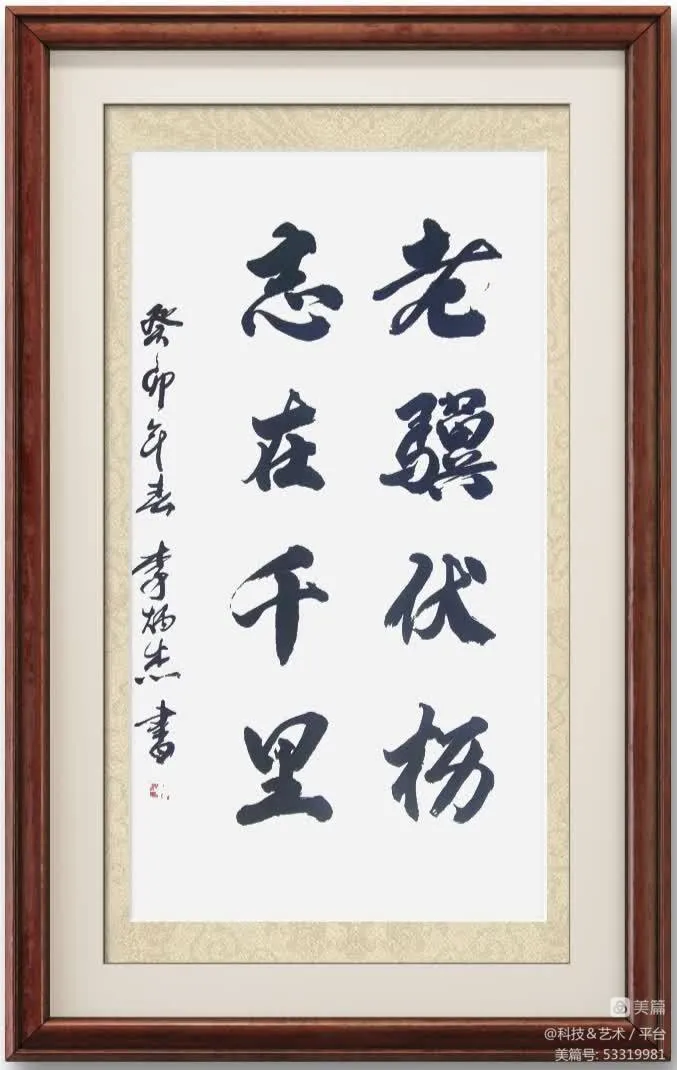 老骥伏枥
志在千里
癸卯年春 李炳杰 書
美篇
@科技&艺术/平台
美篇号: 53319981